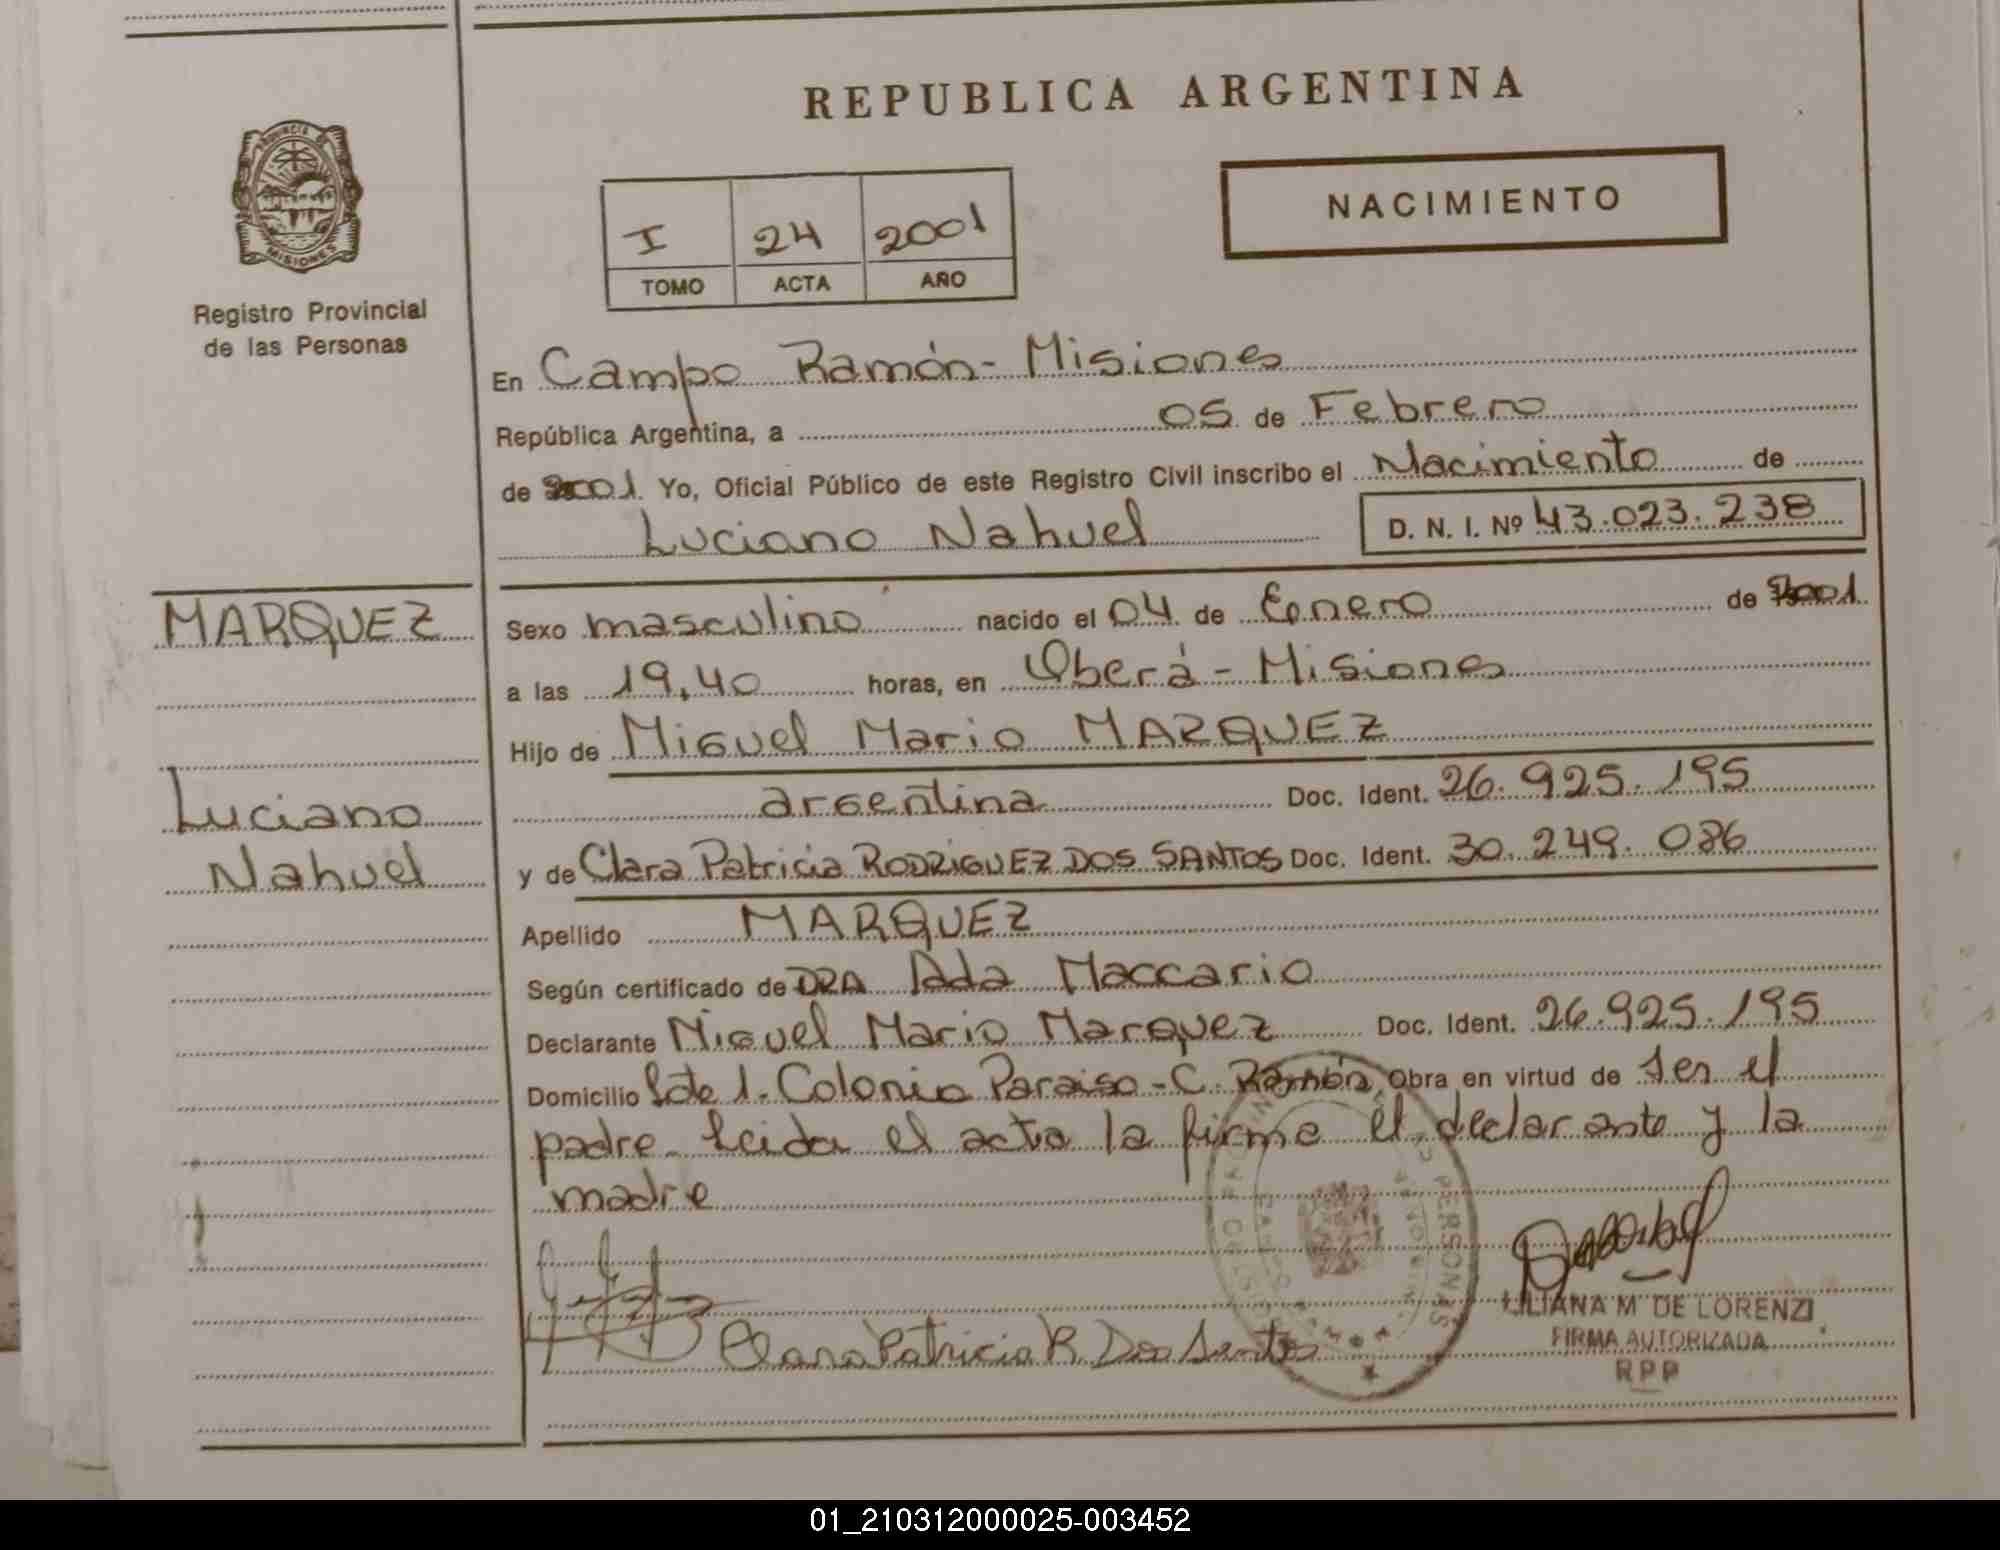 REPUBLICA ARGENTINA
PROVINCIA DE
MISIONES
Registro Provincial
de las Personas
NACIMIENTO
I 24 2001
TOMO ACTA AÑO
En Campo Ramón - Misiones
República Argentina, a 05 de Febrero
de 2001. Yo, Oficial Público de este Registro Civil inscribo el Nacimiento de
Luciano Nahuel D. N. I. Nº 43.023.238
MARQUEZ
Luciano
Nahuel
Sexo masculino nacido el 04 de Enero de 2001
a las 19,40 horas, en Oberá - Misiones
Hijo de Miguel Mario MARQUEZ
argentina Doc. Ident. 26.925.195
y de Clara Patricia RODRIGUEZ DOS SANTOS Doc. Ident. 30.249.086
Apellido MARQUEZ
Según certificado de DRA Ada Maccario
Declarante Miguel Mario Marquez Doc. Ident. 26.925.195
Domicilio Lote 1. Colonia Paraiso - C. Ramón Obra en virtud de ser el
padre. Leida el acta la firma el declarante y la
madre
Clara Patricia R. Dos Santos
PERSONAS
LILIANA M DE LORENZI
FIRMA AUTORIZADA
RPP
01_210312000025-003452